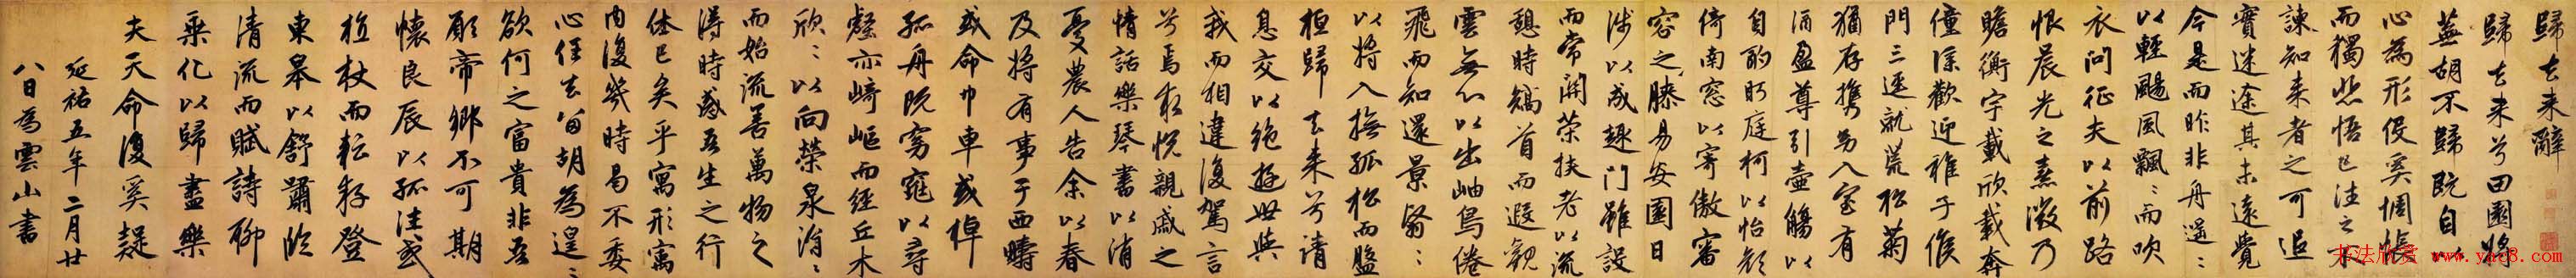 歸去来辭
歸去来兮田園將
蕪胡不歸既自以
心為形役奚惆悵
而獨悲悟已往之不
諫知来者之可追
實迷途其未遠覺
今是而昨非舟遥〻
以輕颺風飄〻而吹
衣問征夫以前路
恨晨光之熹微乃
瞻衡宇載欣載奔
僮僕歡迎稚子候
門三逕就荒松菊
猶存携幼入室有
酒盈尊引壺觴以
自酌眄庭柯以怡顔
倚南窓以寄傲審
容之膝易安園日
涉以成趣門雖設
而常關策扶老以流
憩時矯首而遐觀
雲無心以出岫鳥倦
飛而知還景翳〻
以將入撫孤松而盤
桓歸去来兮請
息交以絶遊世與
我而相違復駕言
兮焉求悅親戚之
情話樂琴書以消
憂農人告余以春
及將有事于西疇
或命巾車或棹
孤舟既窈窕以尋
壑亦崎嶇而經丘木
欣〻以向榮泉涓〻
而始流善萬物之
得時感吾生之行
休已矣乎寓形寓
内復幾時曷不委
心任去留胡為遑〻
欲何之富貴非吾
願帝鄉不可期
懷良辰以孤往或
植杖而耘耔登
東皋以舒嘯臨
清流而賦詩聊
乘化以歸盡樂
夫天命復奚疑
延祐五年二月廿
八日為雲山書
书法欣赏 www.yac8.com